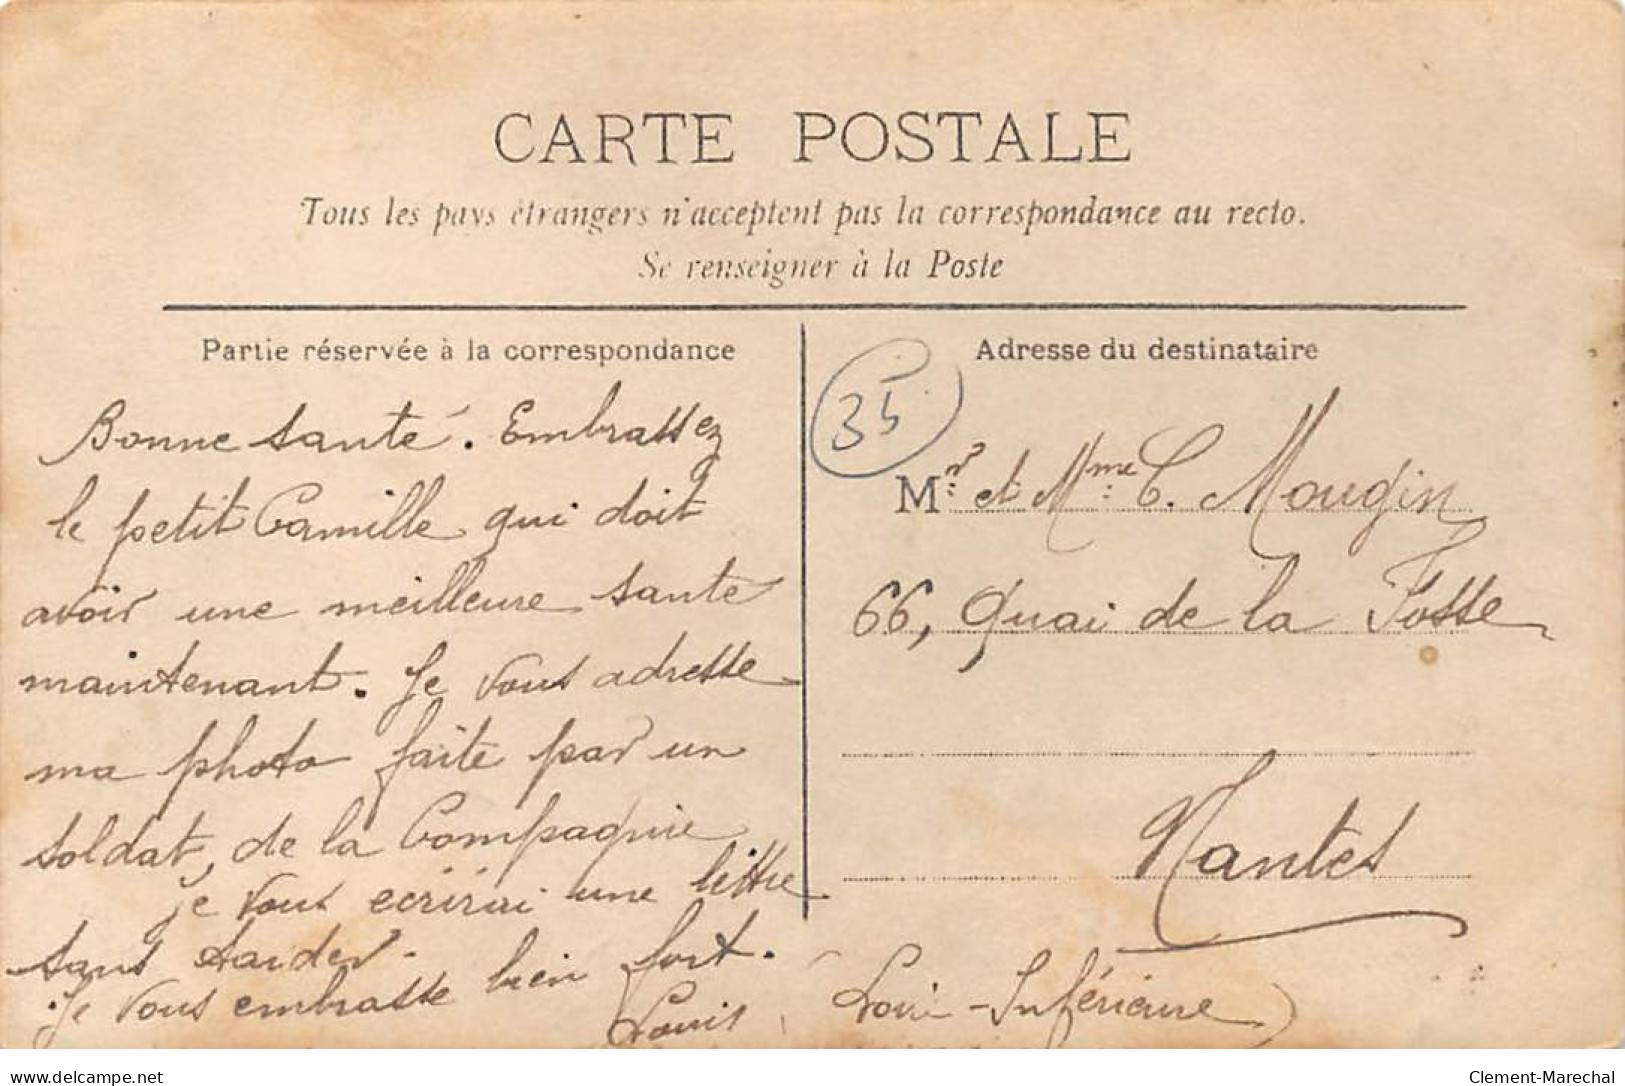 CARTE POSTALE
Tous les pays étrangers n'acceptent pas la correspondance au recto.
Se renseigner à la Poste
Partie réservée à la correspondance
Bonne santé. Embrassez
le petit Camille qui doit
avoir une meilleure santé
maintenant. Je vous adresse
ma photo faite par un
soldat, de la Compagnie
je vous écrirai une lettre
sans tarder.
Je vous embrasse bien fort.
Louis
Adresse du destinataire
35
Mr et Mme C. Mougin
66, Quai de la Fosse
Nantes
(Loire-Inférieure)
www.delcampe.net
Clement-Marechal